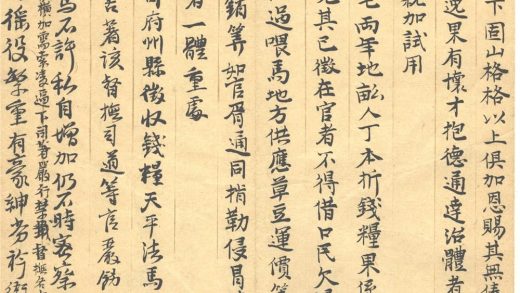 下固山格格以上俱加恩賜其無俸
逸果有懷才抱德通達治體者
就加試用
七兩年地畝人丁本折錢糧果係
免其已徵在官者不得借口民欠
過喂馬地方供應草豆運價等
銷算如官胥通同掯勒侵冒
者一體重處
司府州縣徵收錢糧天平法馬
著該督撫司道等官嚴飭
馬不許私自增加仍不時密察
加需索凌逼下司等嚴行禁督撫
徭役繁重有豪紳劣衿衙